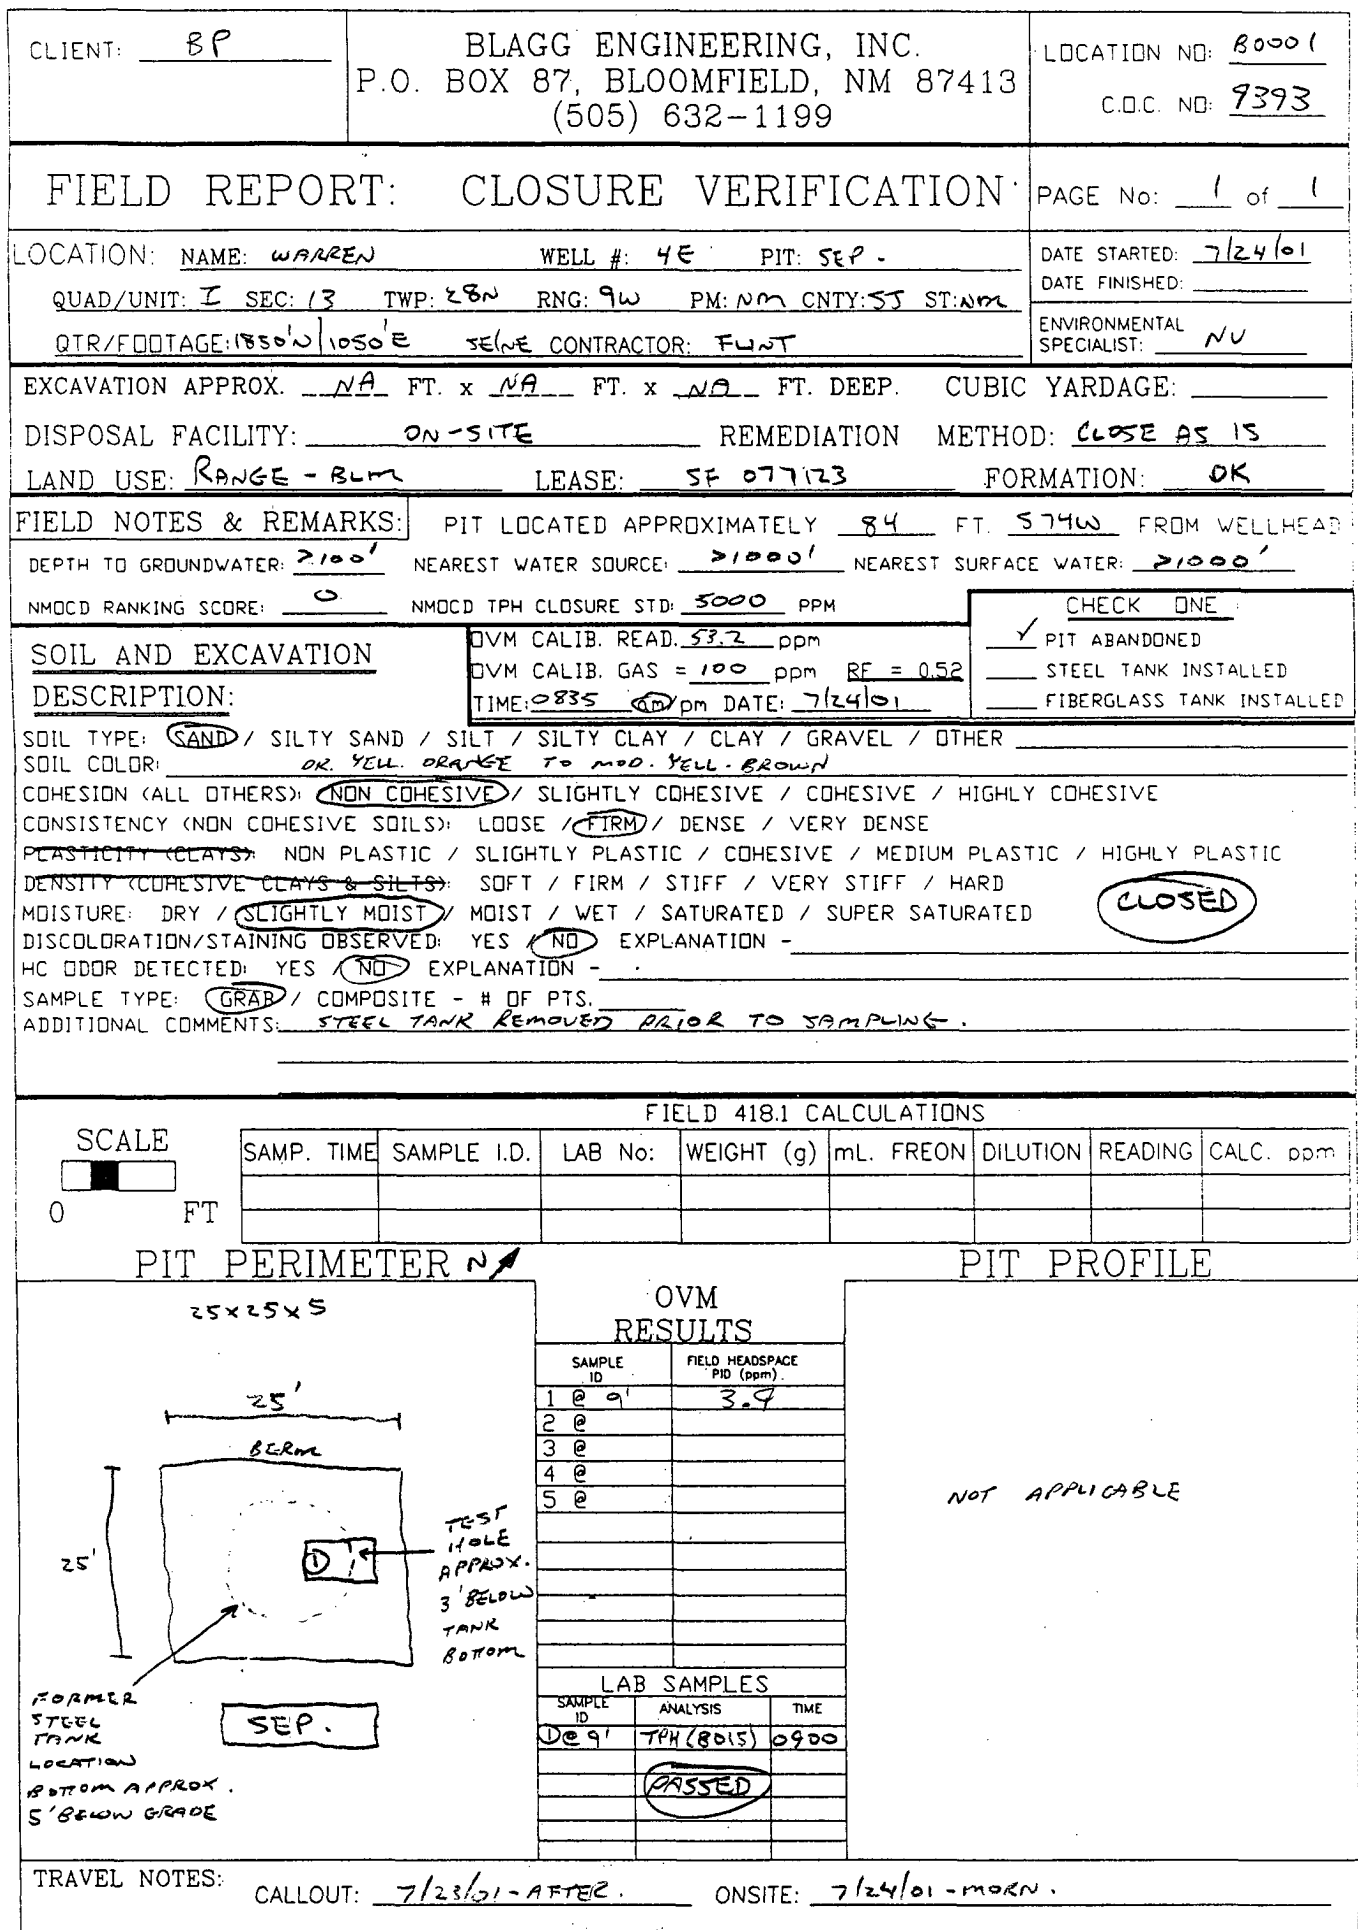 CLIENT: BP
BLAGG ENGINEERING, INC.
P.O. BOX 87, BLOOMFIELD, NM 87413
(505) 632-1199
LOCATION NO: B0001
C.O.C. NO: 9393
FIELD REPORT: CLOSURE VERIFICATION
PAGE No: 1 of 1
LOCATION: NAME: WARREN WELL #: 4E PIT: SEP.
QUAD/UNIT: I SEC: 13 TWP: 28N RNG: 9W PM: NM CNTY: SJ ST: NM
QTR/FOOTAGE: 1850'N/1050'E SE/NE CONTRACTOR: FLINT
DATE STARTED: 7/24/01
DATE FINISHED:
ENVIRONMENTAL
SPECIALIST: NV
EXCAVATION APPROX. NA FT. x NA FT. x NA FT. DEEP. CUBIC YARDAGE:
DISPOSAL FACILITY: ON-SITE REMEDIATION METHOD: CLOSE AS IS
LAND USE: RANGE - BLM LEASE: SF 077123 FORMATION: DK
FIELD NOTES & REMARKS: PIT LOCATED APPROXIMATELY 84 FT. S74W FROM WELLHEAD
DEPTH TO GROUNDWATER: >100' NEAREST WATER SOURCE: >1000' NEAREST SURFACE WATER: >1000'
NMOCD RANKING SCORE: 0 NMOCD TPH CLOSURE STD: 5000 PPM
CHECK ONE :
✓ PIT ABANDONED
STEEL TANK INSTALLED
FIBERGLASS TANK INSTALLED
SOIL AND EXCAVATION
DESCRIPTION:
OVM CALIB. READ. 53.2 ppm
OVM CALIB. GAS = 100 ppm RF = 0.52
TIME: 0835 am/pm DATE: 7/24/01
SOIL TYPE: SAND / SILTY SAND / SILT / SILTY CLAY / CLAY / GRAVEL / OTHER
SOIL COLOR: DK. YELL. ORANGE TO MOD. YELL. BROWN
COHESION (ALL OTHERS): NON COHESIVE / SLIGHTLY COHESIVE / COHESIVE / HIGHLY COHESIVE
CONSISTENCY (NON COHESIVE SOILS): LOOSE / FIRM / DENSE / VERY DENSE
PLASTICITY (CLAYS): NON PLASTIC / SLIGHTLY PLASTIC / COHESIVE / MEDIUM PLASTIC / HIGHLY PLASTIC
DENSITY (COHESIVE CLAYS & SILTS): SOFT / FIRM / STIFF / VERY STIFF / HARD
MOISTURE: DRY / SLIGHTLY MOIST / MOIST / WET / SATURATED / SUPER SATURATED
CLOSED
DISCOLORATION/STAINING OBSERVED: YES / NO EXPLANATION -
HC ODOR DETECTED: YES / NO EXPLANATION -
SAMPLE TYPE: GRAB / COMPOSITE - # OF PTS.
ADDITIONAL COMMENTS: STEEL TANK REMOVED PRIOR TO SAMPLING.
FIELD 418.1 CALCULATIONS
SCALE
0 FT
SAMP. TIME SAMPLE I.D. LAB No: WEIGHT (g) mL. FREON DILUTION READING CALC. ppm
PIT PERIMETER N
PIT PROFILE
25x25x5
25'
BERM
25'
1
TEST
HOLE
APPROX.
3' BELOW
TANK
BOTTOM
FORMER
STEEL
TANK
LOCATION
BOTTOM APPROX.
5' BELOW GRADE
SEP.
OVM
RESULTS
SAMPLE ID FIELD HEADSPACE PID (ppm)
1 @ 9' 3.9
2 @
3 @
4 @
5 @
LAB SAMPLES
SAMPLE ID ANALYSIS TIME
1 @ 9' TPH (8015) 0900
PASSED
NOT APPLICABLE
TRAVEL NOTES: CALLOUT: 7/23/01 - AFTER. ONSITE: 7/24/01 - MORN.